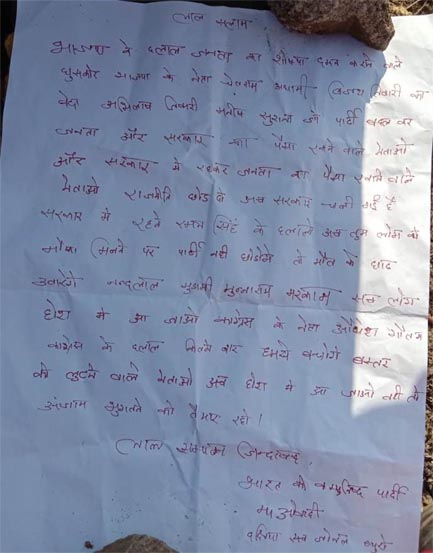 लाल सलाम
भाजपा के दलाल जनता का शोषण दमन करने वाले
घुसखोर भाजपा के नेता विजय तिवारी का
बेटा अभिलाष तिवारी पार्टी बदल कर
जनता और सरकार का पैसा खाने वाले नेताओ
और सरकार मे रहकर जनता का पैसा खाने वाले
नेताओ राजनीति छोड दे अब सरकार चली गई है
सरकार मे रहते रमन सिंह के दलालो अब तुम लोग को
मौका मिलने पर पार्टी नही छोडेगे तो मौत के घाट
उतारेगे नन्दलाल मुडामी मुन्नाराम मरकाम सब लोग
होश मे आ जाओ कांग्रेस के नेता अवधेश गौतम
कांग्रेस के दलाल कितने बार हमसे बचोगे बस्तर
को लुटने वाले नेताओ अब होश मे आ जाओ नही तो
अंजाम भुगतने को तैयार रहो।
लाल सलाम जिन्दाबाद
भारत की कम्युनिस्ट पार्टी
माओवादी
दरभा सब जोनल ब्यूरो